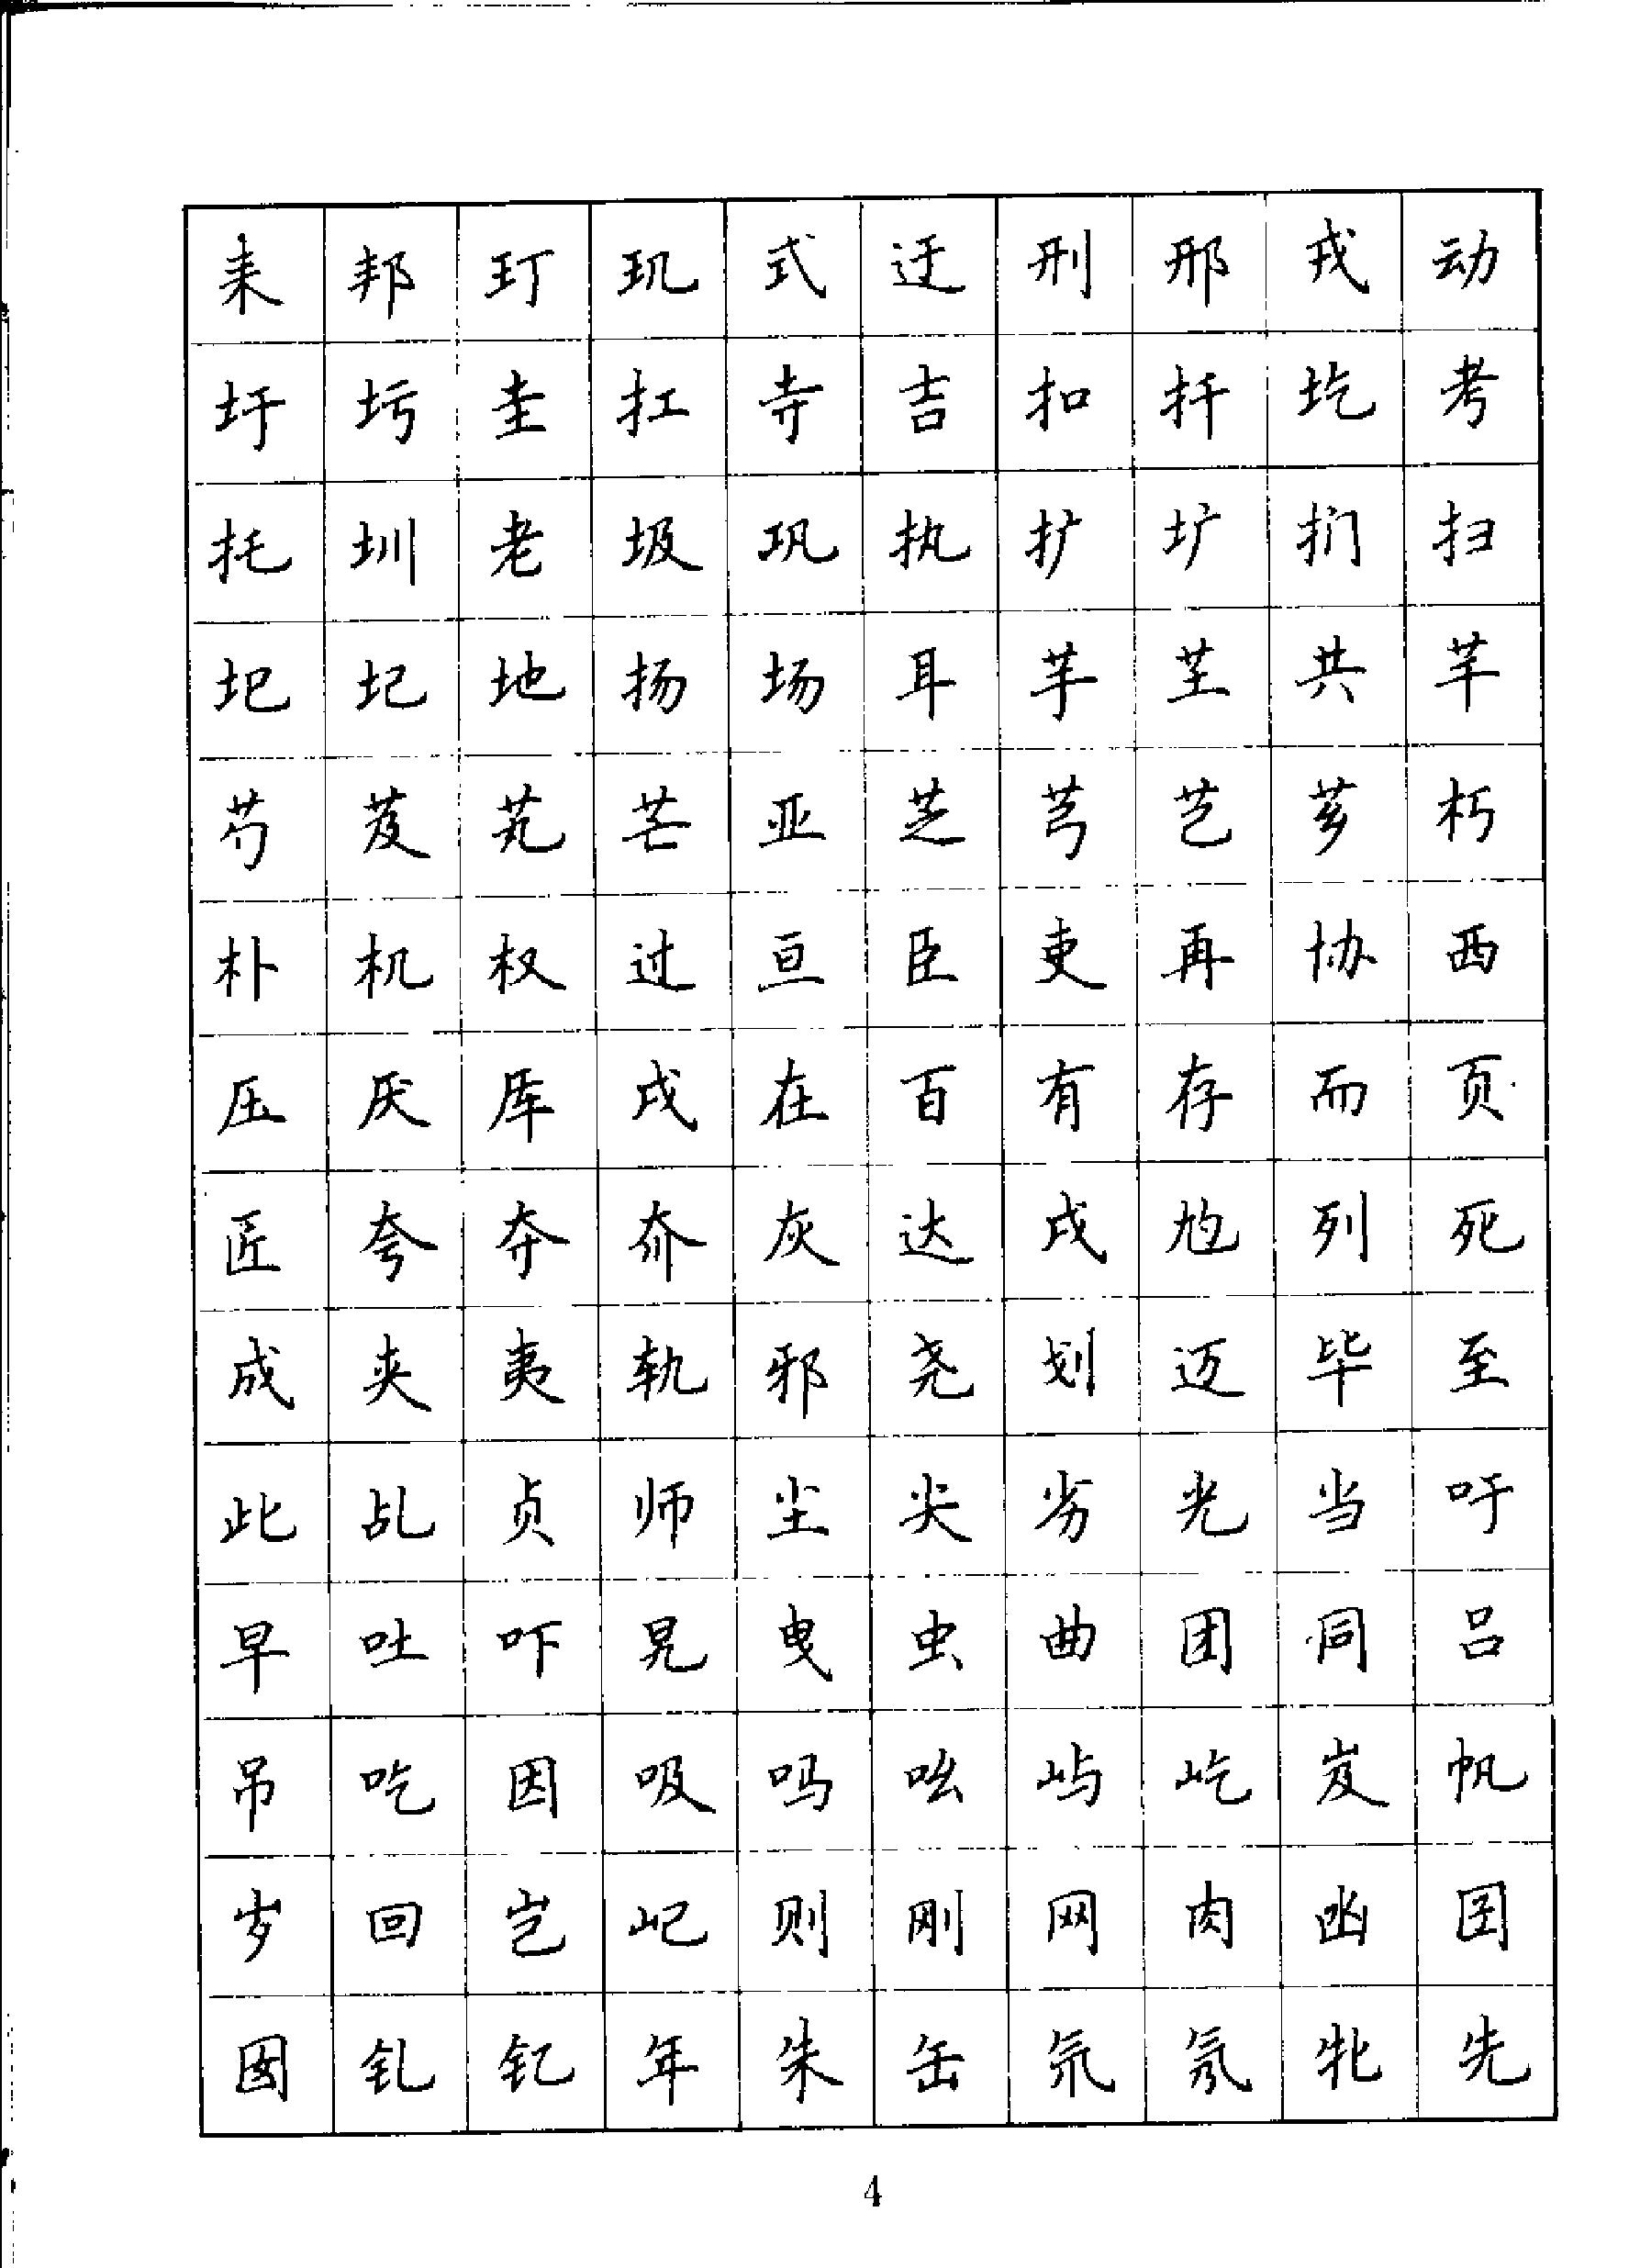 耒邦玎玑式迂刑邢戎动
圩圬圭扛寺吉扣扦圪考
托圳老圾巩执扩圹扪扫
圯圮地扬场耳芋芏共芊
芍芨芄芒亚芝芎芑芗朽
朴机权过亘臣吏再协西
压厌厍戌在百有存而页
匠夸夺夼灰达戍尥列死
成夹夷轨邪尧划迈毕至
此乩贞师尘尖劣光当吁
早吐吓旯曳虫曲团同吕
吊吃因吸吗吆屿屹岌帆
岁回岂屺则刚网肉凼囝
囡钆钇年朱缶氘氖牝先
4